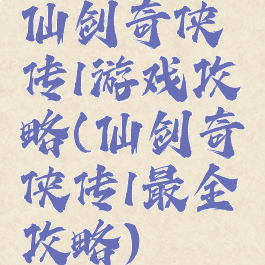 仙剑奇侠
传1游戏攻
略(仙剑奇
侠传1最全
攻略)